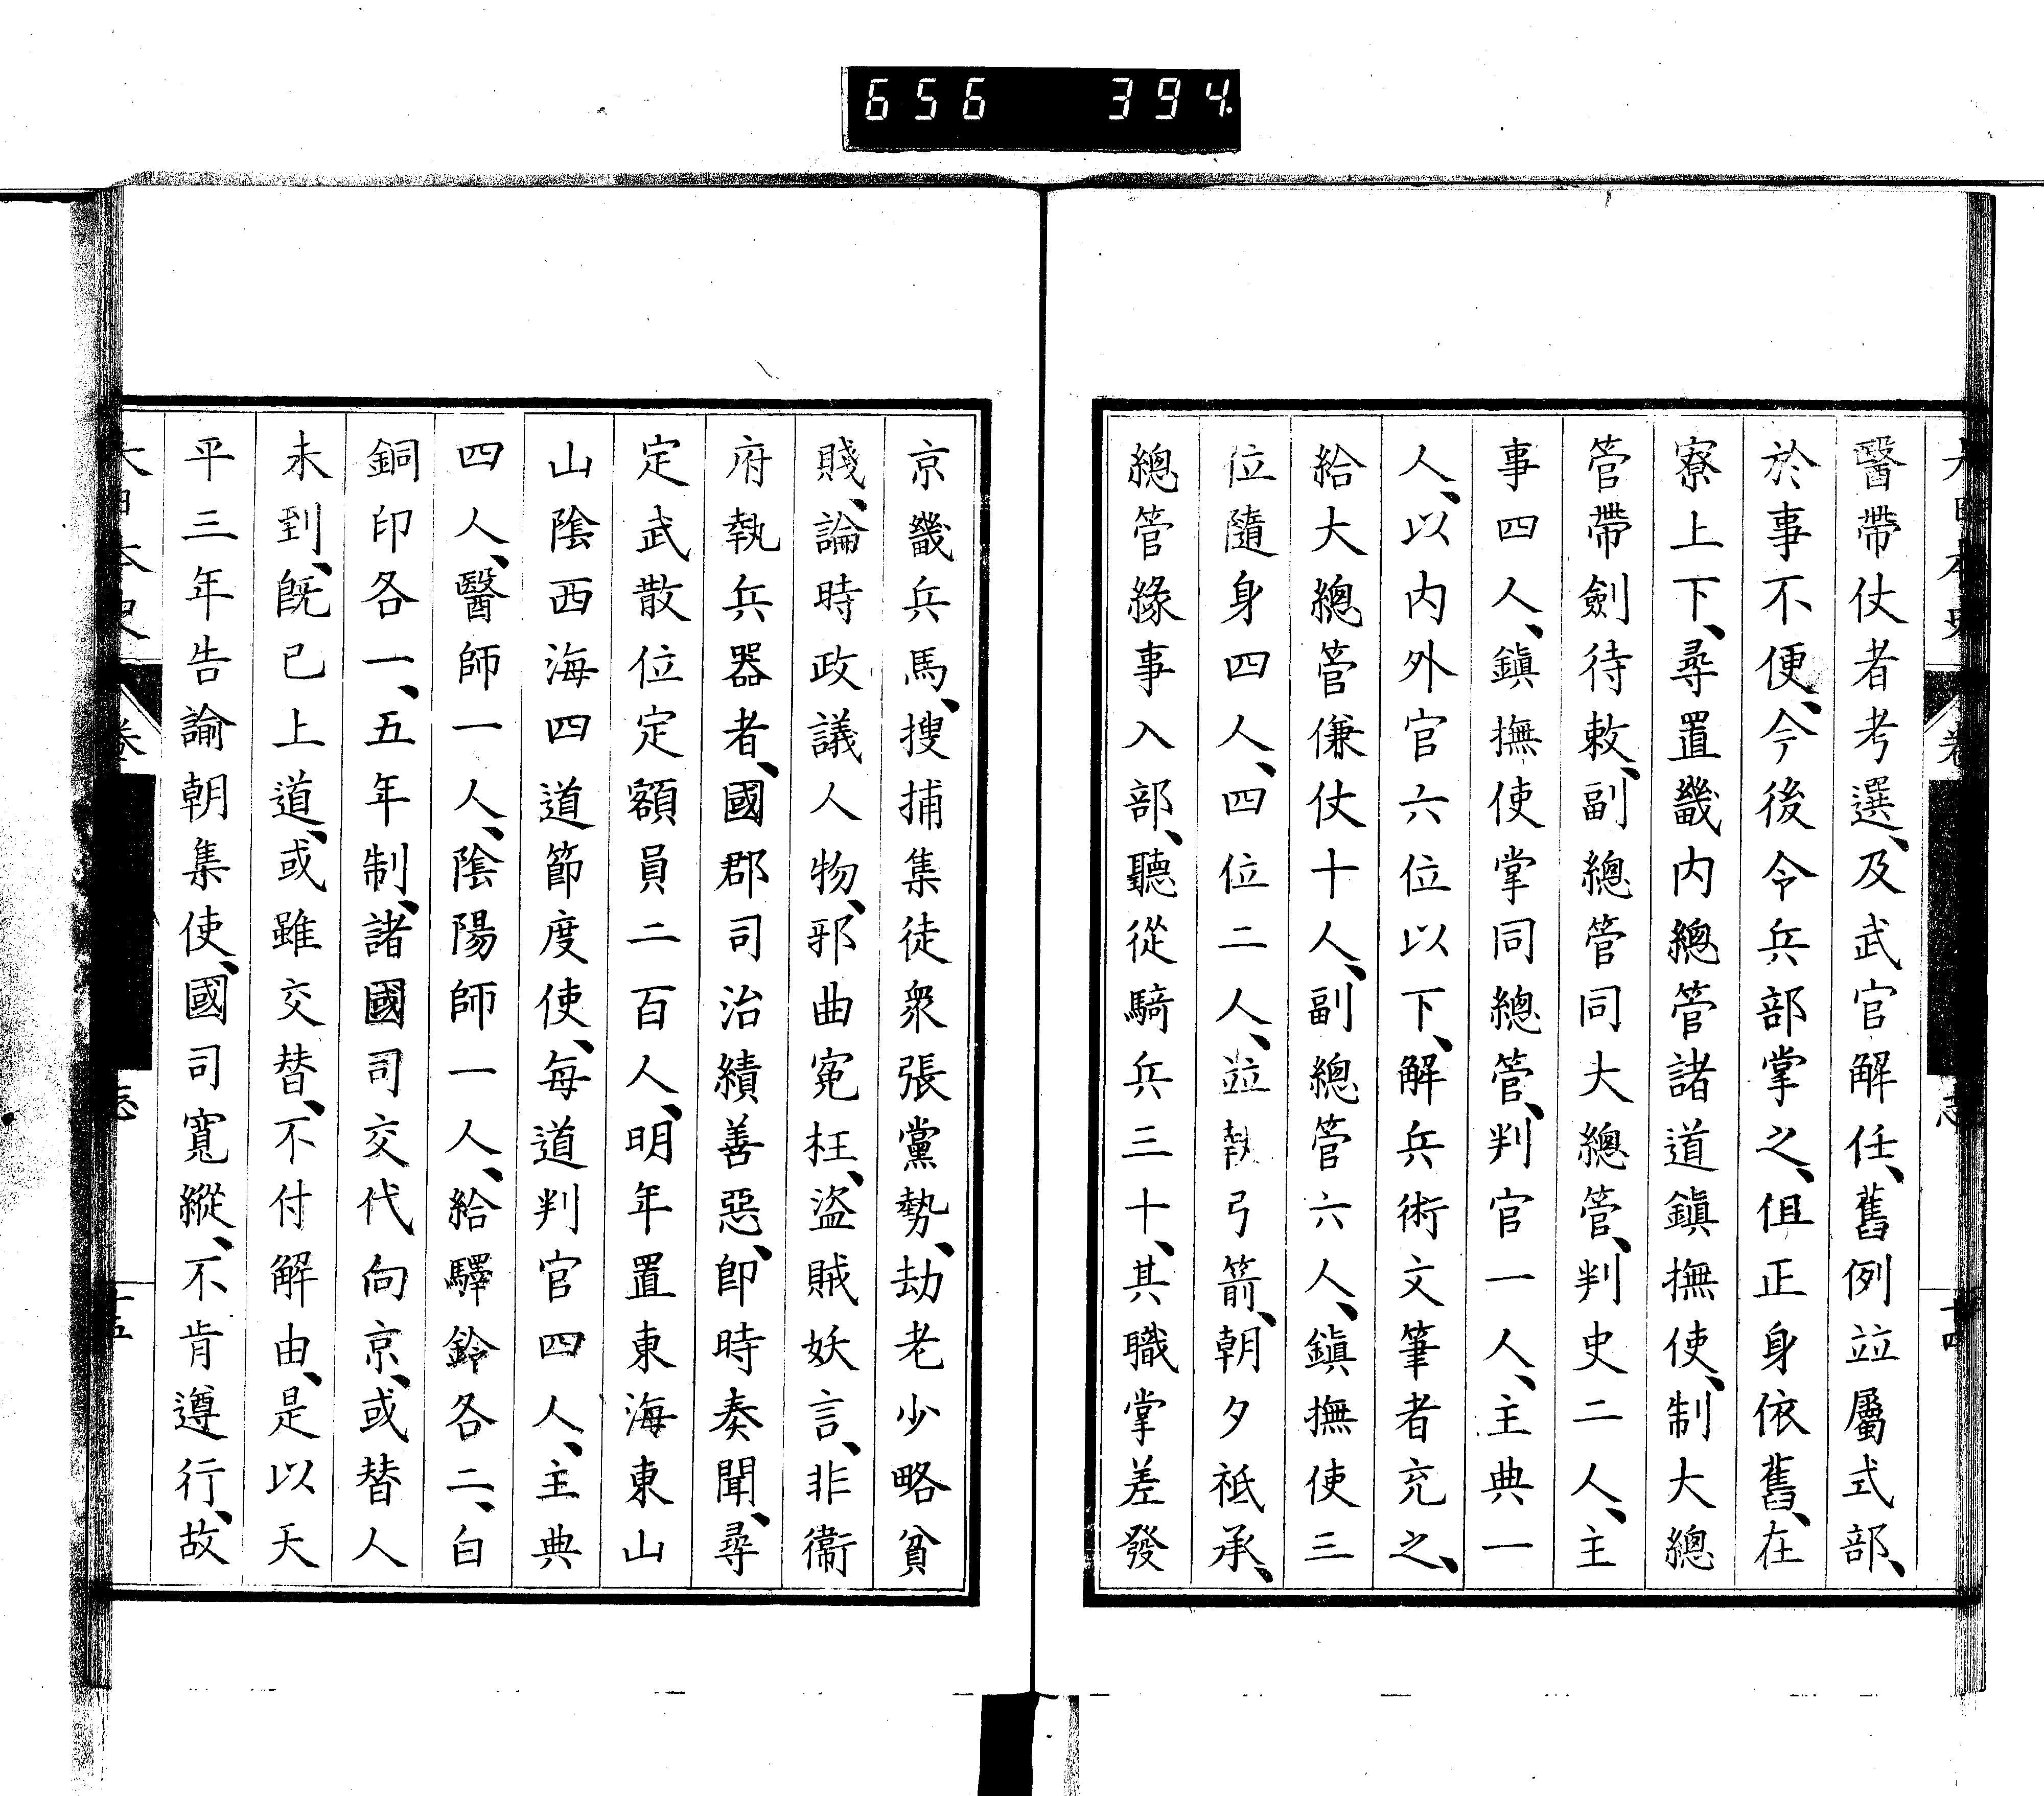 656 394.
大日本史 卷 志 十四
醫帶仗者考選、及武官解任、舊例竝屬式部、
於事不便、今後令兵部掌之、但正身依舊、在
寮上下、尋置畿内總管諸道鎮撫使、制大總
管帶劍待敕、副總管同大總管、判史二人、主
事四人、鎮撫使掌同總管、判官一人、主典一
人、以内外官六位以下、解兵術文筆者充之、
給大總管傔仗十人、副總管六人、鎮撫使三
位隨身四人、四位二人、竝執弓箭、朝夕祗承、
總管緣事入部、聽從騎兵三十、其職掌差發
京畿兵馬、搜捕集徒衆張黨勢、劫老少略貧
賤、論時政議人物、邪曲寃枉、盜賊妖言、非衞
府執兵器者、國郡司治績善惡、卽時奏聞、尋
定武散位定額員二百人、明年置東海東山
山陰西海四道節度使、每道判官四人、主典
四人、醫師一人、陰陽師一人、給驛鈴各二、白
銅印各一、五年制、諸國司交代向京、或替人
未到、旣已上道、或雖交替、不付解由、是以天
平三年告諭朝集使、國司寬縱、不肯遵行、故
大日本史 卷 志 十五